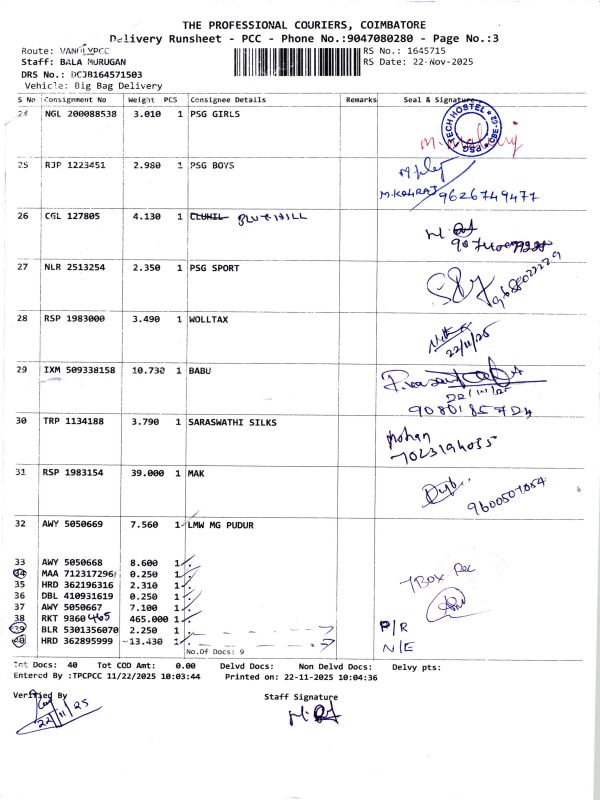 THE PROFESSIONAL COURIERS, COIMBATORE
Delivery Runsheet - PCC - Phone No.:9047080280 - Page No.:3
Route: VAN01 PCC
RS No.: 1645715
Staff: BALA MURUGAN
RS Date: 22-Nov-2025
DRS No.: DCJB164571503
Vehicle: Big Bag Delivery
S No Consignment No Weight PCS Consignee Details Remarks Seal & Signature
24 NGL 200088538 3.010 1 PSG GIRLS
PSG TECH HOSTEL CBE-
25 RJP 1223451 2.980 1 PSG BOYS
9626749477
26 CGL 127805 4.130 1 CLUHIL BLUE HILL
27 NLR 2513254 2.350 1 PSG SPORT
28 RSP 1983000 3.490 1 WOLLTAX
22/11/25
29 IXM 509338158 10.730 1 BABU
22/11/25
30 TRP 1134188 3.790 1 SARASWATHI SILKS
Mohan
7023194055
31 RSP 1983154 39.000 1 MAK
9600507054
32 AWY 5050669 7.560 1 LMW MG PUDUR
33 AWY 5050668 8.600 1
34 MAA 712317296 0.250 1
35 HRD 362196316 2.310 1
36 DBL 410931619 0.250 1
37 AWY 5050667 7.100 1
38 RKT 9860465 465.000 1
39 BLR 5301356070 2.250 1
40 HRD 362895999 13.430 1
7 Box Rec
P/R
N/E
No.Of Docs: 9
Tot Docs: 40 Tot COD Amt: 0.00 Delvd Docs: Non Delvd Docs: Delvy pts:
Entered By :TPCPCC 11/22/2025 10:03:44 Printed on: 22-11-2025 10:04:36
Verified By
Staff Signature
22/11/25